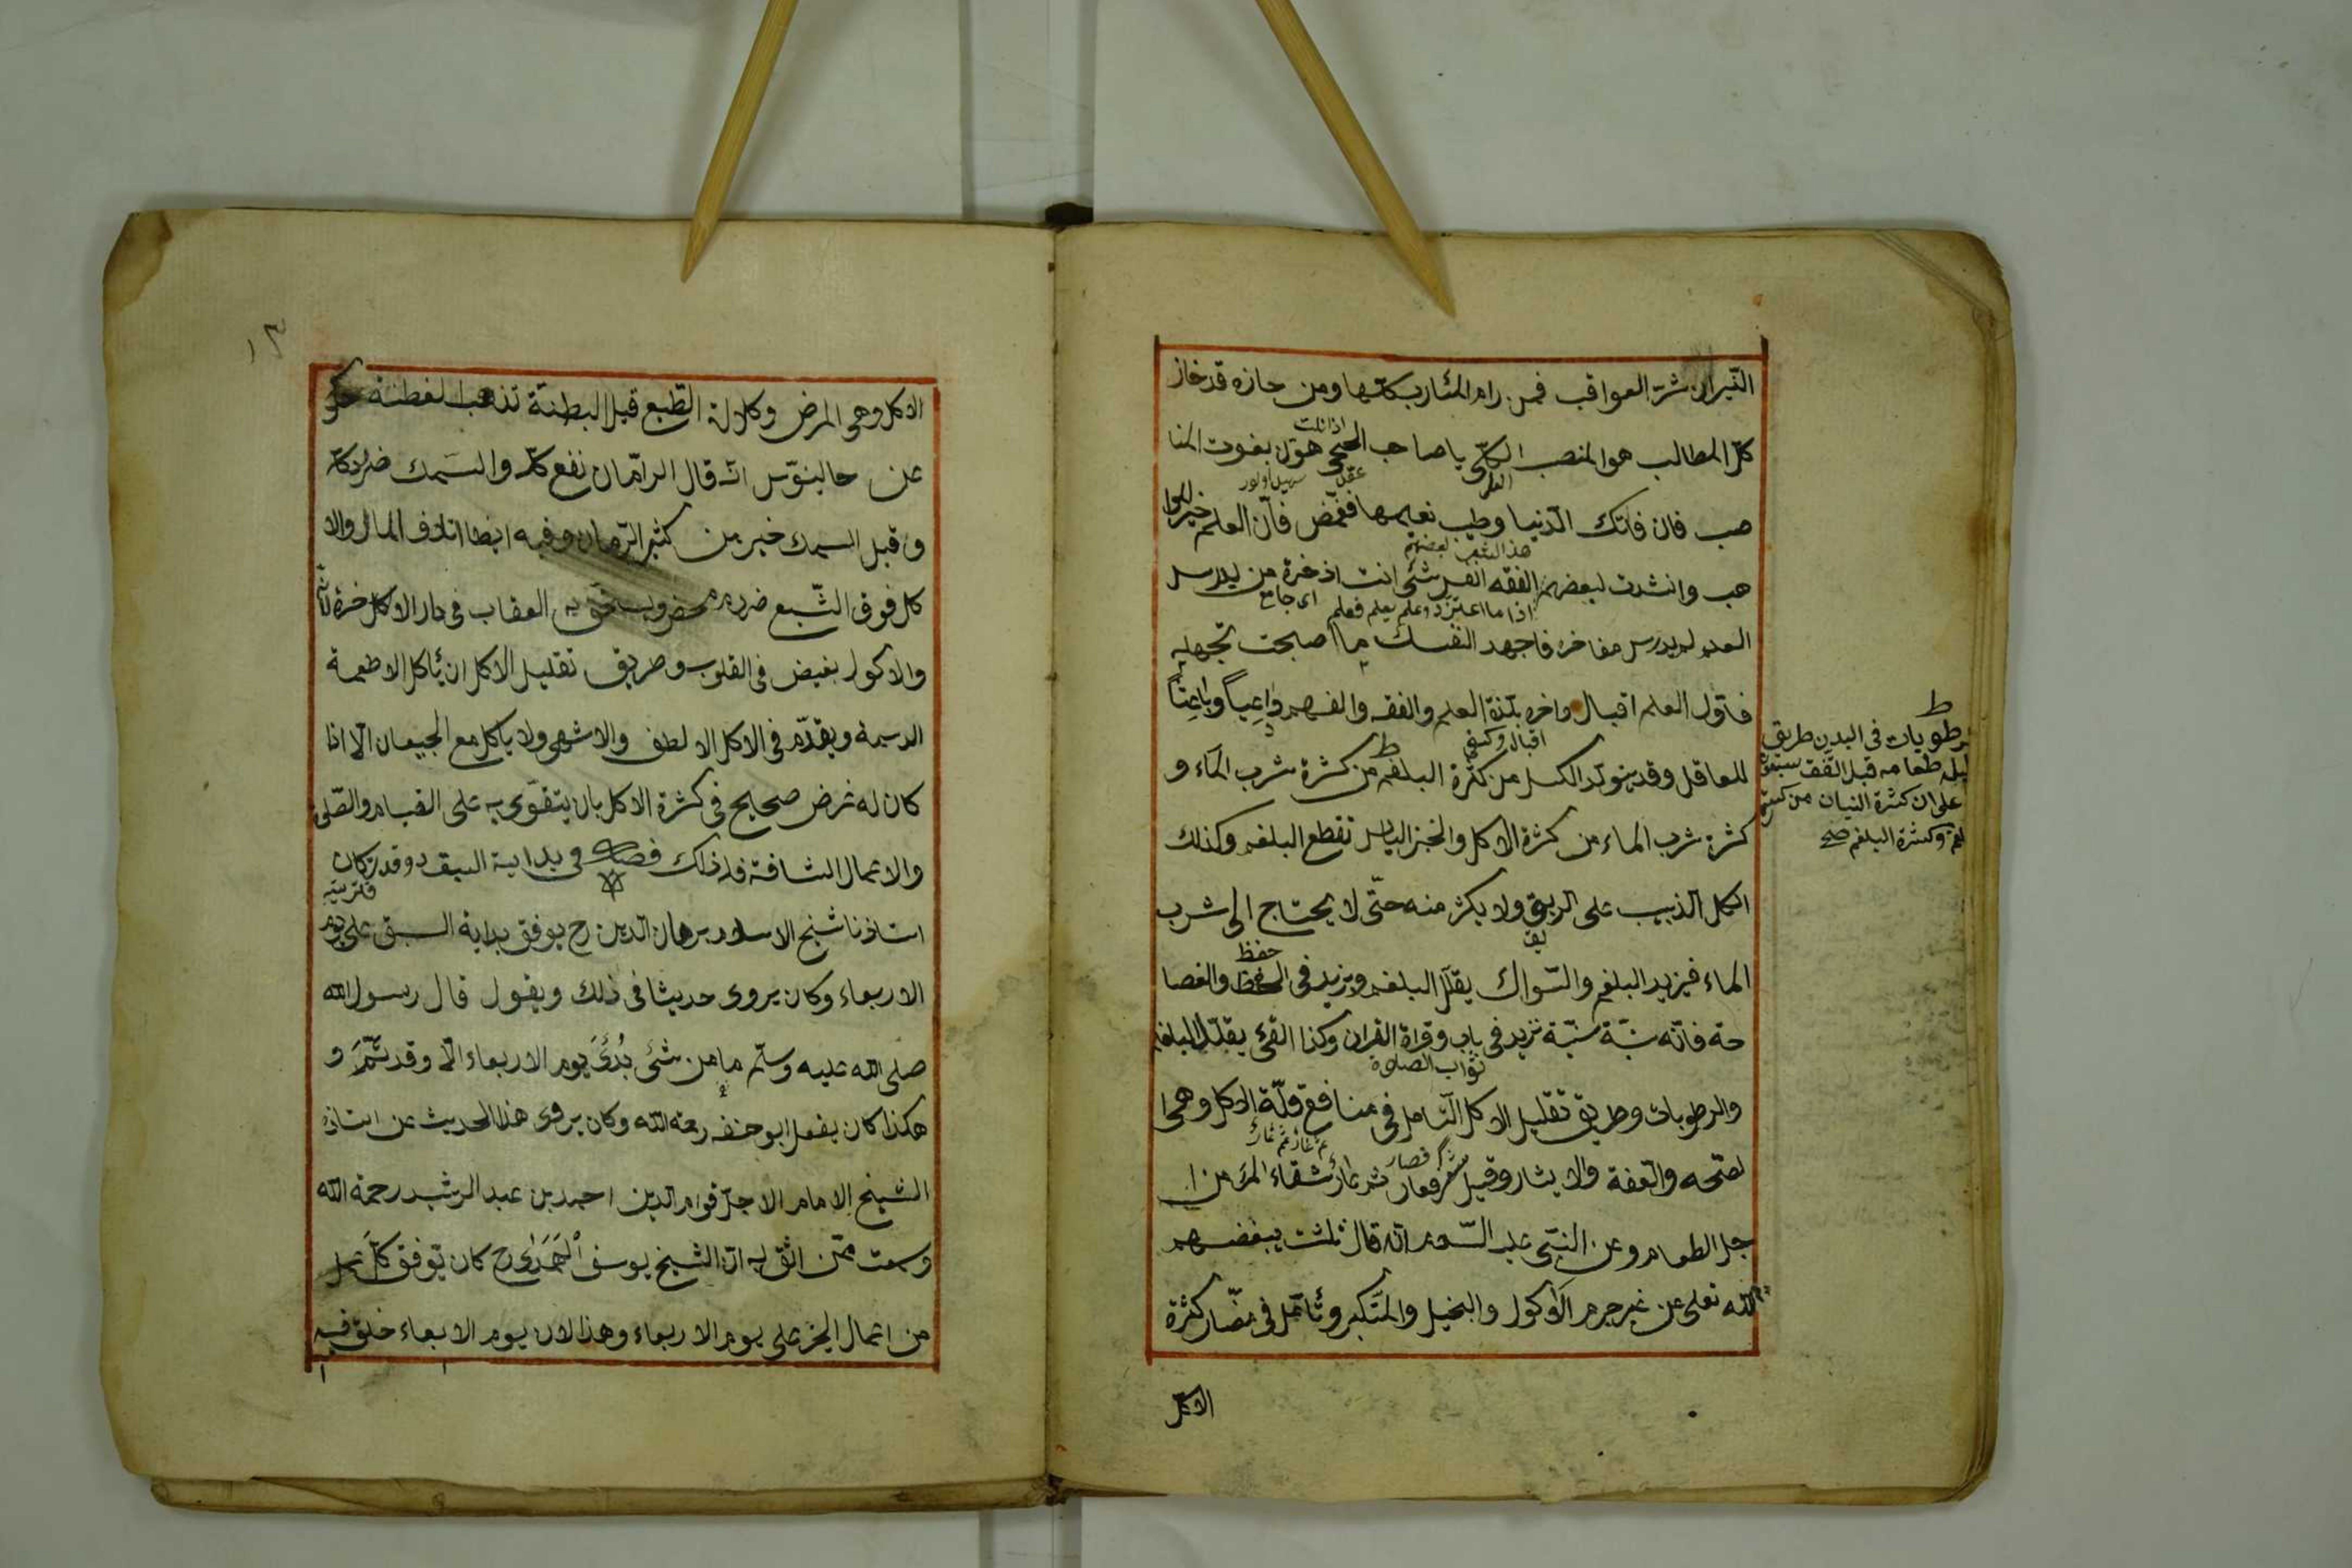 النّيران شرّ العواقب فمن رام المئارب كلّها ومن حازه قد حاز
كلّ المطالب هو المنصب الكلّى يا صاحب الحجى هوّن بفوت المنا
اذا نلت
صب فان فاتك الدّنيا وطيب نعيمها فغمّض فانّ العلم خير الموا
العلم
عقل
هب وانشدت لبعضهم الفقه انفس شئ انت اذخره من يدرس
هذا الشعر لبعضهم
العلم لم يدرس مفاخره فاجهد لنفسك ما اصبحت تجهله
اذا ما اعتز ذو علم بعلم فعلم
اى جامع
فاوّل العلم اقبال واخره بلذة العلم والفقه والفهم داعياً وباعثاً
للعاقل وقد يتولد الكسل من كثرة البلغم من كثرة شرب الماء و
اقبال وكسفى
ط
كثرة شرب الماء من كثرة الاكل والخبز اليابس تقطع البلغم وكذلك
اكل الزبيب على الريق ولا يكثر منه حتّى لا يحتاج الى شرب
الماء فيزيد البلغم والسّواك يقلّل البلغم ويزيد فى الحفظ والفصا
حفظ
حة فانّه سنّة سنيّة تزيد فى باب وقراة القران وكذا القئ يقلّل البلغم
ثواب الصلاوة
والرطوبات وطريق تقليل الاكل التأمل فى منافع قلّة الاكل وهى ا
لصّحه والعّفة والايثار وقيل شعر فعار ثم عار شقاء المرء من ا
جل الطعام وعن النبّى عليه السّلام انّه قال ثلثة يبغضهم
الله تعلى عن غير جرم الاوكول والبخيل والمتَكبر وتأمّل فى مضّار كثرة
الاكل
ط
رطوبات فى البدن طريق
طعامه قبل
على ان كثرة النسيان من كثرة
بلغم وكثرة البلغم صح
١٣
الاكل وهى المرض وكلالة الطّبع قيل البطنة تذهب الفطنة حكى
عن جالينوّس انّه قال الرامّان نفع كلّه والسَمك ضرر كلّه
وقيل السمك خير من كثير الرّمان وفيه ايضا اتلاف المال والا
كل فوق الشّبع ضرر محض ويستحق به العقاب فى دار الاخرة
والاكول بغيض فى القلوب وطريق تقليل الاكل ان يأكل الاطعمة
الدسيمة ويقدّم فى الاكل الالطف والاشهى ولا ياكل مع الجيعان الّا اذا
كان له غرض صحيح فى كثرة الاكل بان يتقوّى به على القيام والصّلى
والاعمال الشاقة فله ذلك فصل فى بداية السبق وقد كان
استاذنا شيخ الاسلام برهان الدين رح يوفق بداية السبق على يوم
الاربعاء وكان يروى حديثا فى ذلك ويقول قال رسول الله
صلى الله عليه وسلّم ما من شئى بُدئَ يوم الاربعاء الّا وقد تَمَّ و
هكذا كان يفعل ابو حنفه رحمة الله وكان يروى هذا الحديث عن استاذه
الشيخ الامام الاجلّ قوام الدين احمد بن عبد الرشيد رحمة الله
وسمعت ممّن اثق به انّ الشيخ يوسف الهَمَدانى رح كان يوفق كلّ عمل
من اعمال الخير على يوم الاربعاء وهذا لان يوم الابعاء خلق فيه